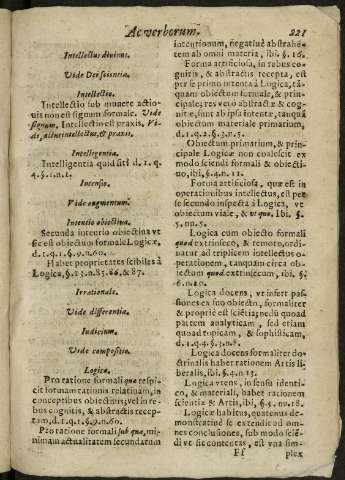 Ac verborum. 221
Intellectus diuinus.
Vide Dei scientia.
Intellectio.
Intellectio sub munere actio-
uis non est signum formale. Vide
signum. Intellectio est praxis, Vi-
de, intellectus, & praxis.
Intelligentia.
Intelligentia quid sit? d. 1. q.
4. §. 1. n. 1.
Intensio.
Vide augmentum.
Intentio obiectiua.
Secunda intentio obiectiua vt
sic est obiectum formale Logicæ,
d. 1. q. 1. §. 9. n. 60.
Habet proprietates scibiles à
Logica, §. 13. n. 85. 86. & 87.
Irrationale.
Vide differentia.
Iudicium.
Vide compositio.
Logica.
Pro ratione formali quæ respi-
cit formam rationis relatiuam, in
conceptibus obiectiuis; vel in re-
bus cognitis, & abstractis recep-
tam, d. 1. q. 1. §. 9. n. 60.
Pro ratione formali sub qua, mi-
nimam actualitatem secundatum
intentionum, negatiuè abstrahē-
tem ab omni materia, ibi. §. 16.
Forma artificiosa, in rebus co-
gnitis, & abstractis recepta, est
per se primo intenta à Logica, tã-
quam obiectum formale, & prin-
cipale; res vero abstractæ & cog-
nitæ, sunt ab ipsa intentæ, tanquã
obiectum materiale primarium,
d. 1. q. 2. §. 2. n. 5.
Obiectum primarium, & prin-
cipale Logicæ non coalescit ex
modo sciendi formali & obiecti-
uo, ibi, §. 4. n. 11.
Forma artificiosa, quæ est in
operationibus intellectus, est per
se secundo inspecta à Logica, vt
obiectum viale, & vt quo. Ibi. §.
5. nu. 5.
Logica cum obiecto formali
quod extrinseco, & remoto, ordi-
natur ad triplicem intellectus o-
perationem, tanquam circa ob-
iectum quod extrinsecum, ibi. §.
6. n. 20.
Logica docens, vt infert pas-
siones ex suo obiecto, formaliter
& propriè est scientia; nedũ quoad
partem analyticam, sed etiam
quoad topicam, & sophisticam,
d. 1. q. 4. §. 3. n. 8.
Logica docens formaliter do-
ctrinalis habet rationem Artis li-
beralis, ibi, §. 4. n. 13.
Logica vtens, in sensu identi-
co, & materiali, habet rationem
scientiæ & Artis, ibi, §. nu. 18.
Logicæ habitus, quatenus de-
monstratiuè se extendit ad om-
nes conclusiones, sub modo sciē-
di vt sic contentas, est vna sim-
Ff plex